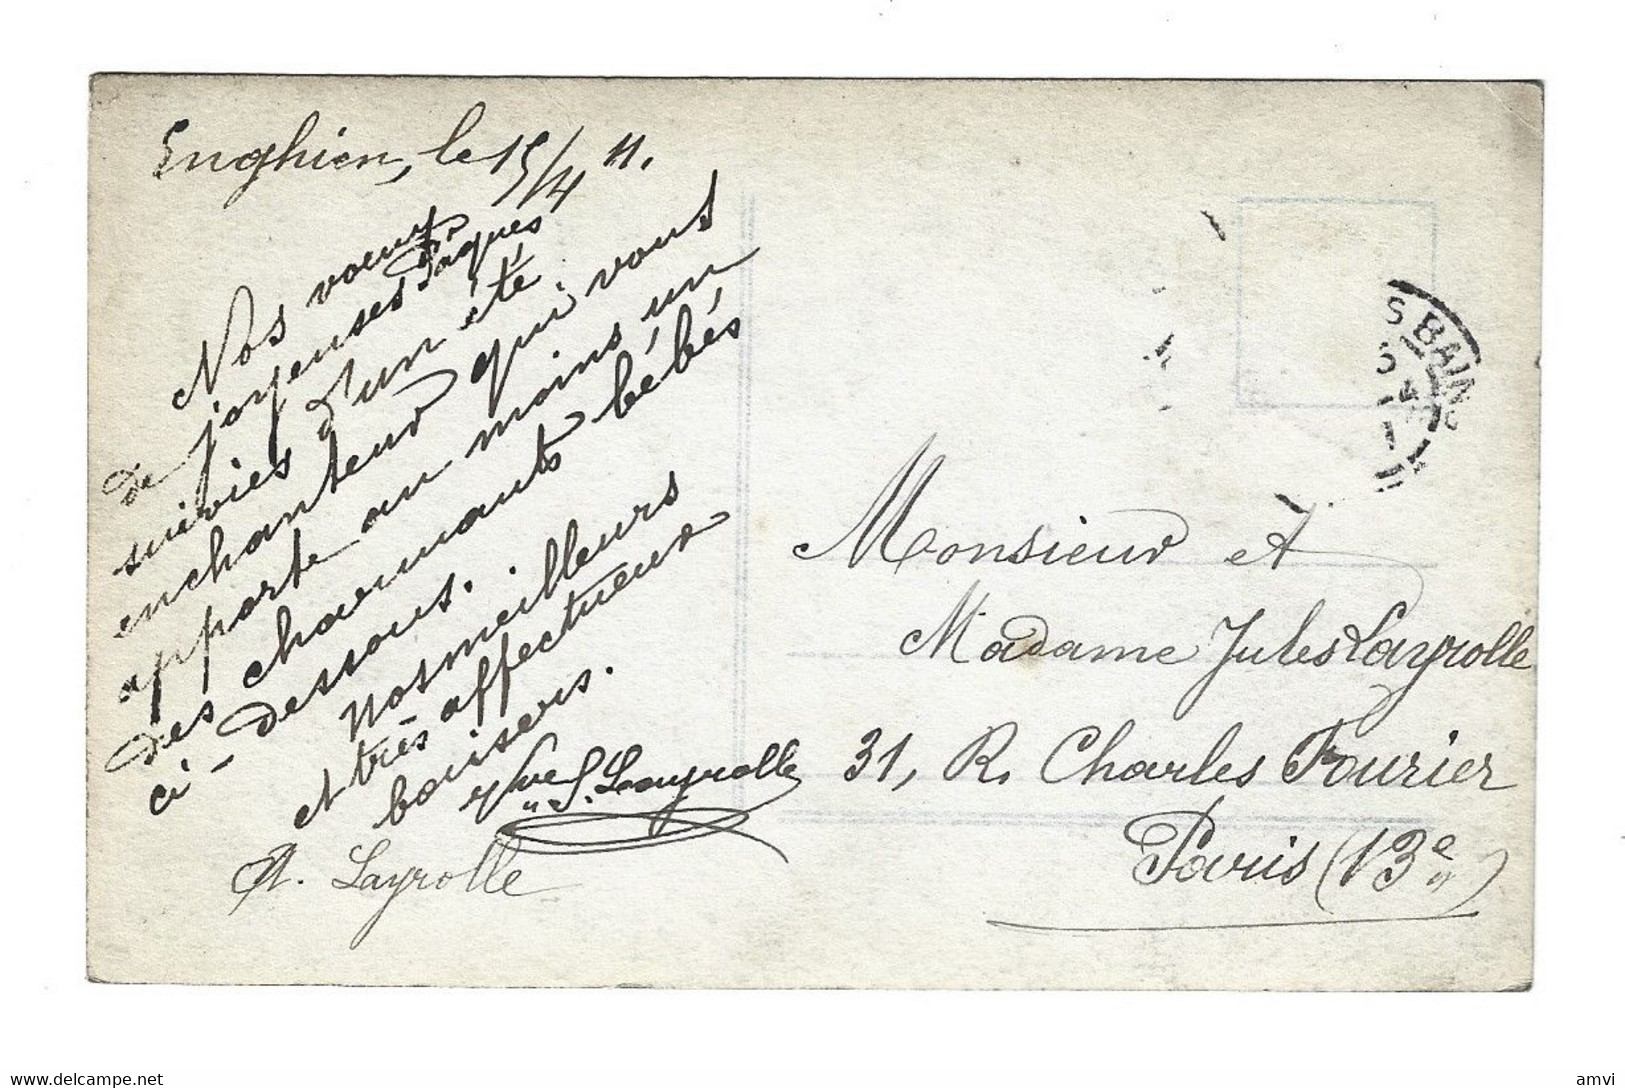 Enghien, le 15/4 11.
Nos voeux
de joyeuses Pâques
suivies d'un été
enchanteur qui vous
apporte au moins un
des charmants bébés
ci-dessous.
Nos meilleurs
et très affectueux
baisers.
S. Layrolle
A. Layrolle
S BAINS
Monsieur et
Madame Jules Layrolle
31, R. Charles Fourier
Paris (13e)
www.delcampe.net
amvi